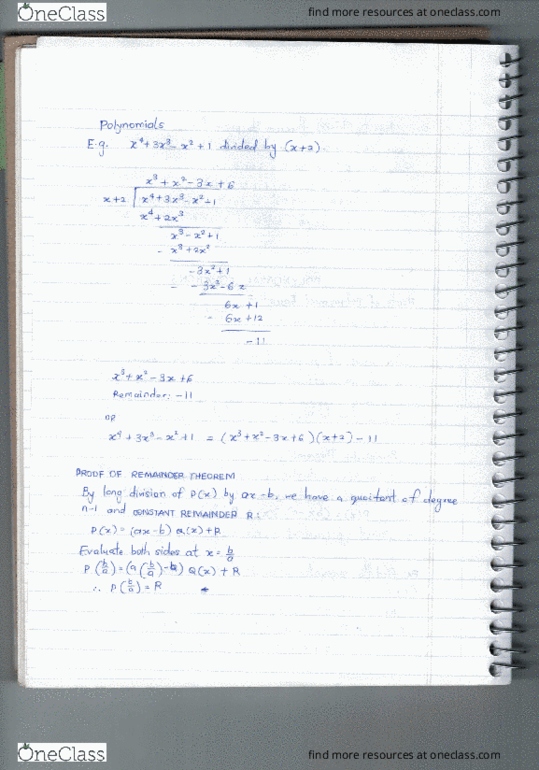 OneClass
find more resources at oneclass.com
Polynomials
E.g. x⁴+3x³-x²+1 divided by (x+2)
x³+x²-3x+6
x+2 x⁴+3x³-x²+1
x⁴+2x³
x³-x²+1
- x³+2x²
-3x²+1
- -3x²-6x
6x+1
- 6x+12
-11
x³+x²-3x+6
Remainder: -11
OR
x⁴+3x³-x²+1 = (x³+x²-3x+6)(x+2)-11
PROOF OF REMAINDER THEOREM
By long division of P(x) by ax-b, we have a quotient of degree
n-1 and CONSTANT REMAINDER R:
P(x)=(ax-b) Q(x)+R
Evaluate both sides at x=b/a
P(b/a)=(a(b/a)-b) Q(x)+R
∴ P(b/a)=R
OneClass
find more resources at oneclass.com